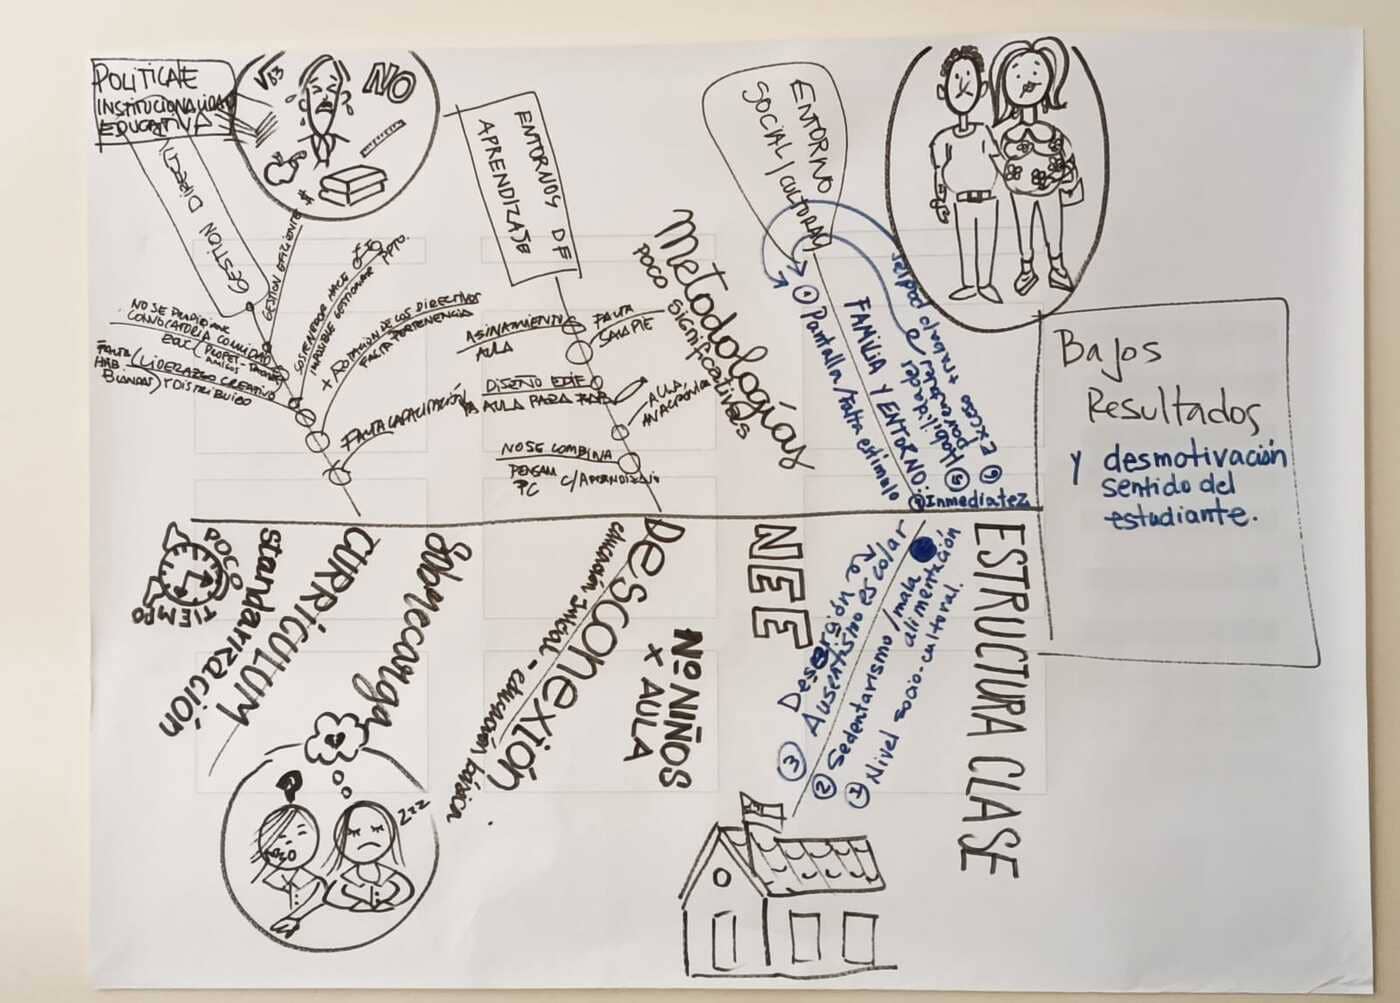 POLITICA E
INSTITUCIONALIDAD
EDUCATIVA
GESTIÓN DIRECTI
NO
GESTIÓN EFICIENTE $
SOSTENEDOR HACE
IMPOSIBLE GESTIONAR PPTO.
+ ROTACIÓN DE LOS DIRECTIVOS
FALTA PERTENENCIA
FALTA CAPACITACIÓN
NO SE
CONVOCATORIA COMUNIDAD
FALTA LIDERAZGO CREATIVO
HAB.
BLANDAS Y DISTRIBUIDO
ENTORNOS DE
APRENDIZAJE
ASINAMIENTO
AULA
FALTA
DISEÑO EDIF
AULA PARA
AULA
ANACRÓNICA
NO SE COMBINA
PENSAM
PC
C/APRENDIZAJE
Metodologías
POCO significativas
ENTORNO
SOCIAL/CULTURAL
FAMILIA Y ENTORNO:
1 Pantalla/Falta estimulo
4 Inmediatez
5 Habilidades
parentales
6 Exceso + trabajo
Bajos
Resultados
y desmotivación
sentido del
estudiante.
POCO
TIEMPO
standarización
CURRÍCULUM
Sobrecarga
zzz
Desconexión
educación inicial - educación básica.
Nº NIÑOS
X AULA
NEE
3 Deserción
Ausentismo escolar
2 Sedentarismo/mala
alimentación
1 Nivel socio-cultural.
ESTRUCTURA CLASE